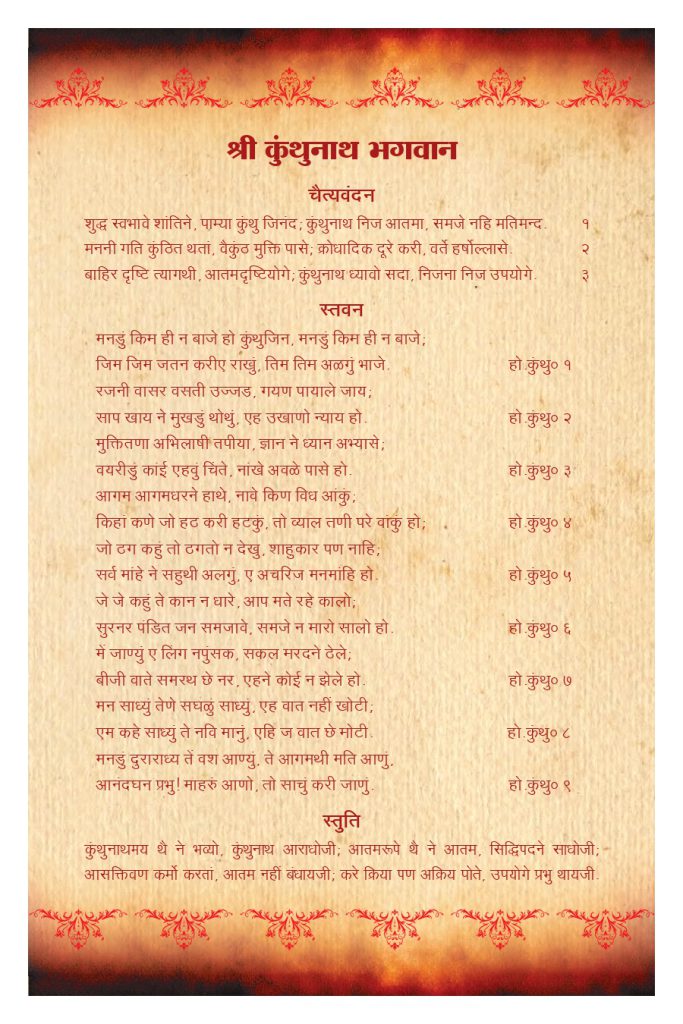 श्री कुंथुनाथ भगवान
चैत्यवंदन
शुद्ध स्वभावे शांतिने, पाम्या कुंथु जिनंद; कुंथुनाथ निज आतमा, समजे नहि मतिमन्द. १
मननी गति कुंठित थतां, वैकुंठ मुक्ति पासे; क्रोधादिक दूरे करी, वर्ते हर्षोल्लासे. २
बाहिर दृष्टि त्यागथी, आतमदृष्टियोगे; कुंथुनाथ ध्यावो सदा, निजना निज उपयोगे. ३
स्तवन
मनडुं किम ही न बाजे हो कुंथुजिन, मनडुं किम ही न बाजे;
जिम जिम जतन करीए राखुं, तिम तिम अळगुं भाजे. हो.कुंथु० १
रजनी वासर वसती उज्जड, गयण पायाले जाय;
साप खाय ने मुखडुं थोथुं, एह उखाणो न्याय हो. हो.कुंथु० २
मुक्तितणा अभिलाषी तपीया, ज्ञान ने ध्यान अभ्यासे;
वयरीडुं कांई एहवुं चिंते, नांखे अवळे पासे हो. हो.कुंथु० ३
आगम आगमधरने हाथे, नावे किण विध आंकुं;
किहां कणे जो हठ करी हटकुं, तो व्याल तणी परे वांकुं हो; हो.कुंथु० ४
जो ठग कहुं तो ठगतो न देखु, शाहुकार पण नाहि;
सर्व मांहे ने सहुथी अलगुं, ए अचरिज मनमांहि हो. हो.कुंथु० ५
जे जे कहुं ते कान न धारे, आप मते रहे कालो;
सुरनर पंडित जन समजावे, समजे न मारो सालो हो. हो.कुंथु० ६
में जाण्युं ए लिंग नपुंसक, सकल मरदने ठेले;
बीजी वाते समरथ छे नर, एहने कोई न झेले हो. हो.कुंथु० ७
मन साध्युं तेणे सघळुं साध्युं, एह वात नहीं खोटी;
एम कहे साध्युं ते नवि मानुं, एहि ज वात छे मोटी. हो.कुंथु० ८
मनडुं दुराराध्य तें वश आण्युं, ते आगमथी मति आणुं,
आनंदघन प्रभु! माहरुं आणो, तो साचुं करी जाणुं. हो.कुंथु० ९
स्तुति
कुंथुनाथमय थै ने भव्यो, कुंथुनाथ आराधोजी; आतमरूपे थै ने आतम, सिद्धिपदने साधोजी;
आसक्तिवण कर्मो करतां, आतम नहीं बंधायजी; करे क्रिया पण अक्रिय पोते, उपयोगे प्रभु थायजी.